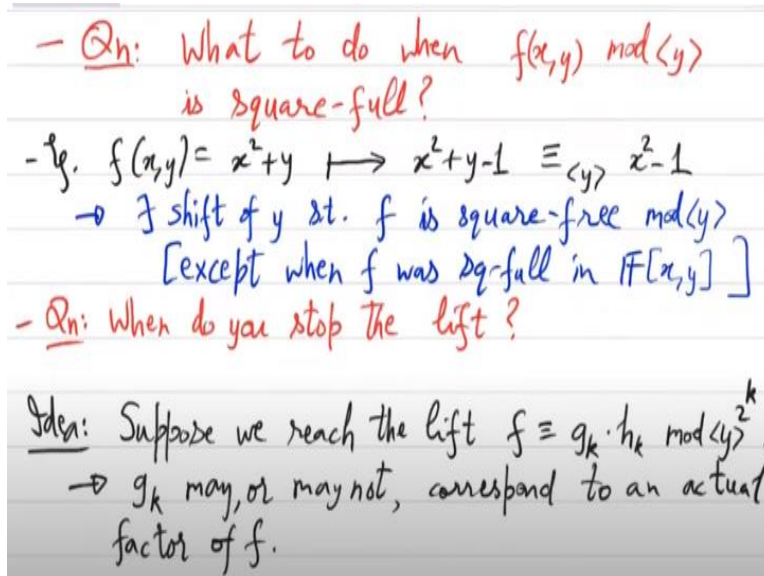 - Qn: What to do when f(x,y) mod <y>
is square-full?
- Eg. f(x,y) = x²+y ⟼ x²+y-1 ≡<y> x²-1
→ ∃ shift of y st. f is square-free mod <y>
[except when f was sq-full in 𝔽[x,y] ]
- Qn: When do you stop the lift?
Idea: Suppose we reach the lift f ≡ gₖ·hₖ mod <y>^2^k
→ gₖ may, or may not, correspond to an actual
factor of f.